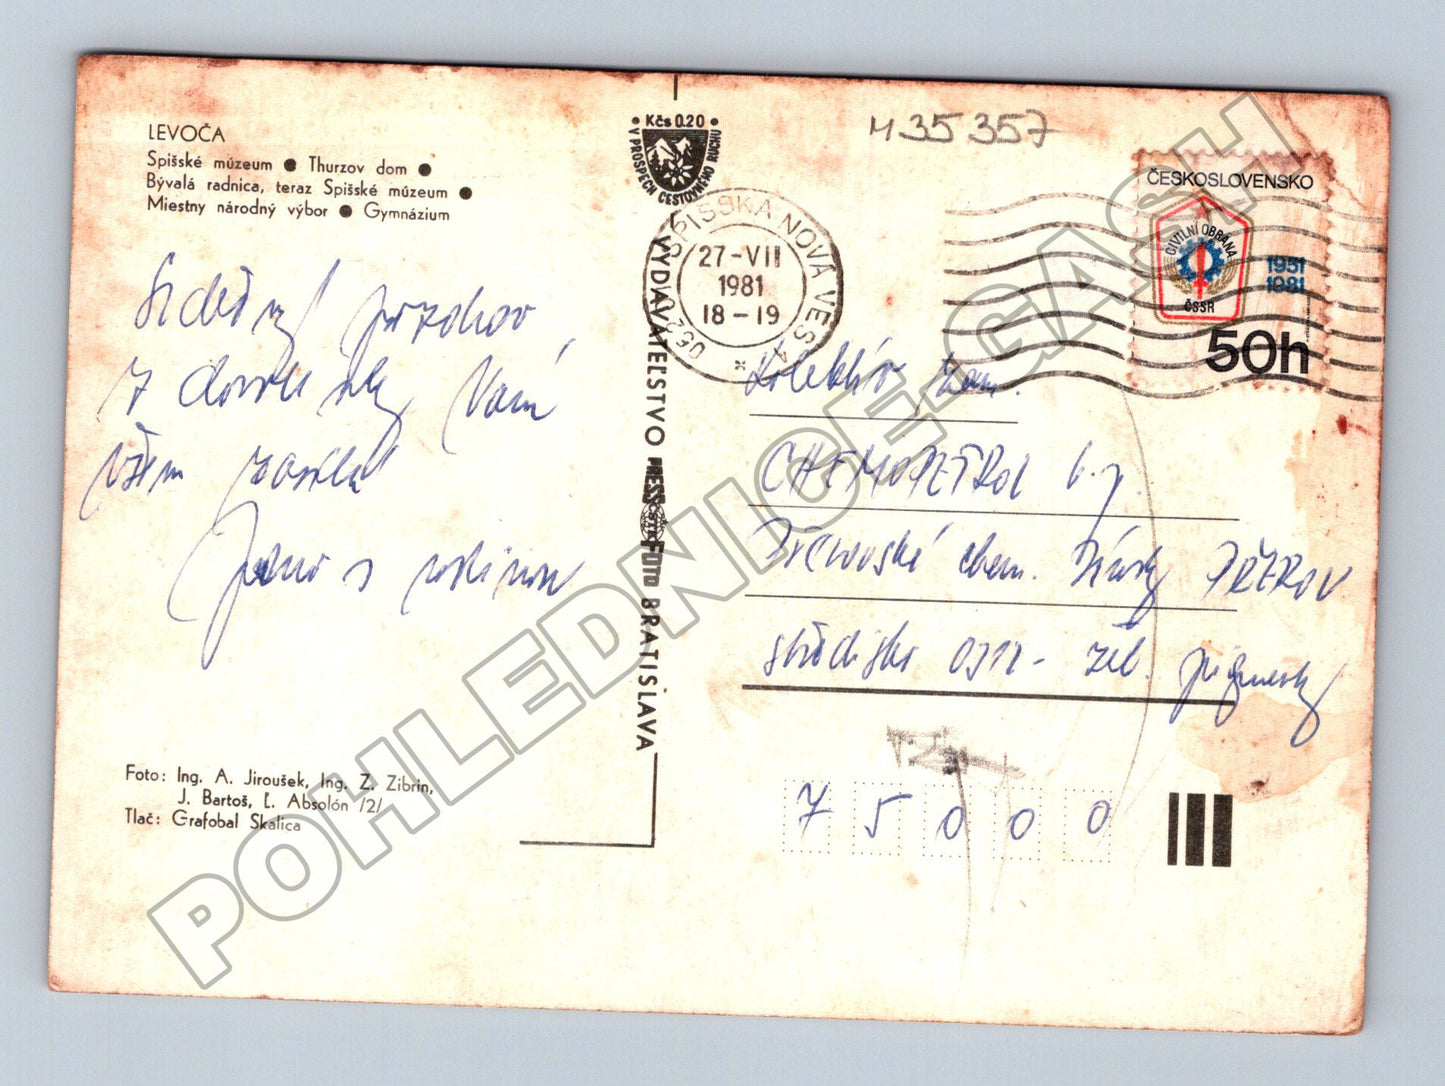 LEVOČA
Spišské múzeum ● Thurzov dom ●
Bývalá radnica, teraz Spišské múzeum ●
Miestny národný výbor ● Gymnázium
Srdečný pozdrav
z dovolenky Vám
všem zasílá
s rodinou
Foto: Ing. A. Jiroušek, Ing. Z. Zibrin,
J. Bartoš, Ľ. Absolón /2/
Tlač: Grafobal Skalica
• Kčs 0.20 •
V PROSPECH CESTOVNÉHO RUCHU
VYDAVATEĽSTVO PRESSFOTO BRATISLAVA
ČSTK
435357
SPIŠSKÁ NOVÁ VES
27-VII
1981
18-19
ČESKOSLOVENSKO
CIVILNÍ OBRANA
ČSSR
1951
1981
50h
Kolektiv zam.
CHEMOPETROL k.p.
Přerovské chem. závody PŘEROV
středisko žel. pigmenty
7 5 0 0 0
POHLEDNICE-GASH